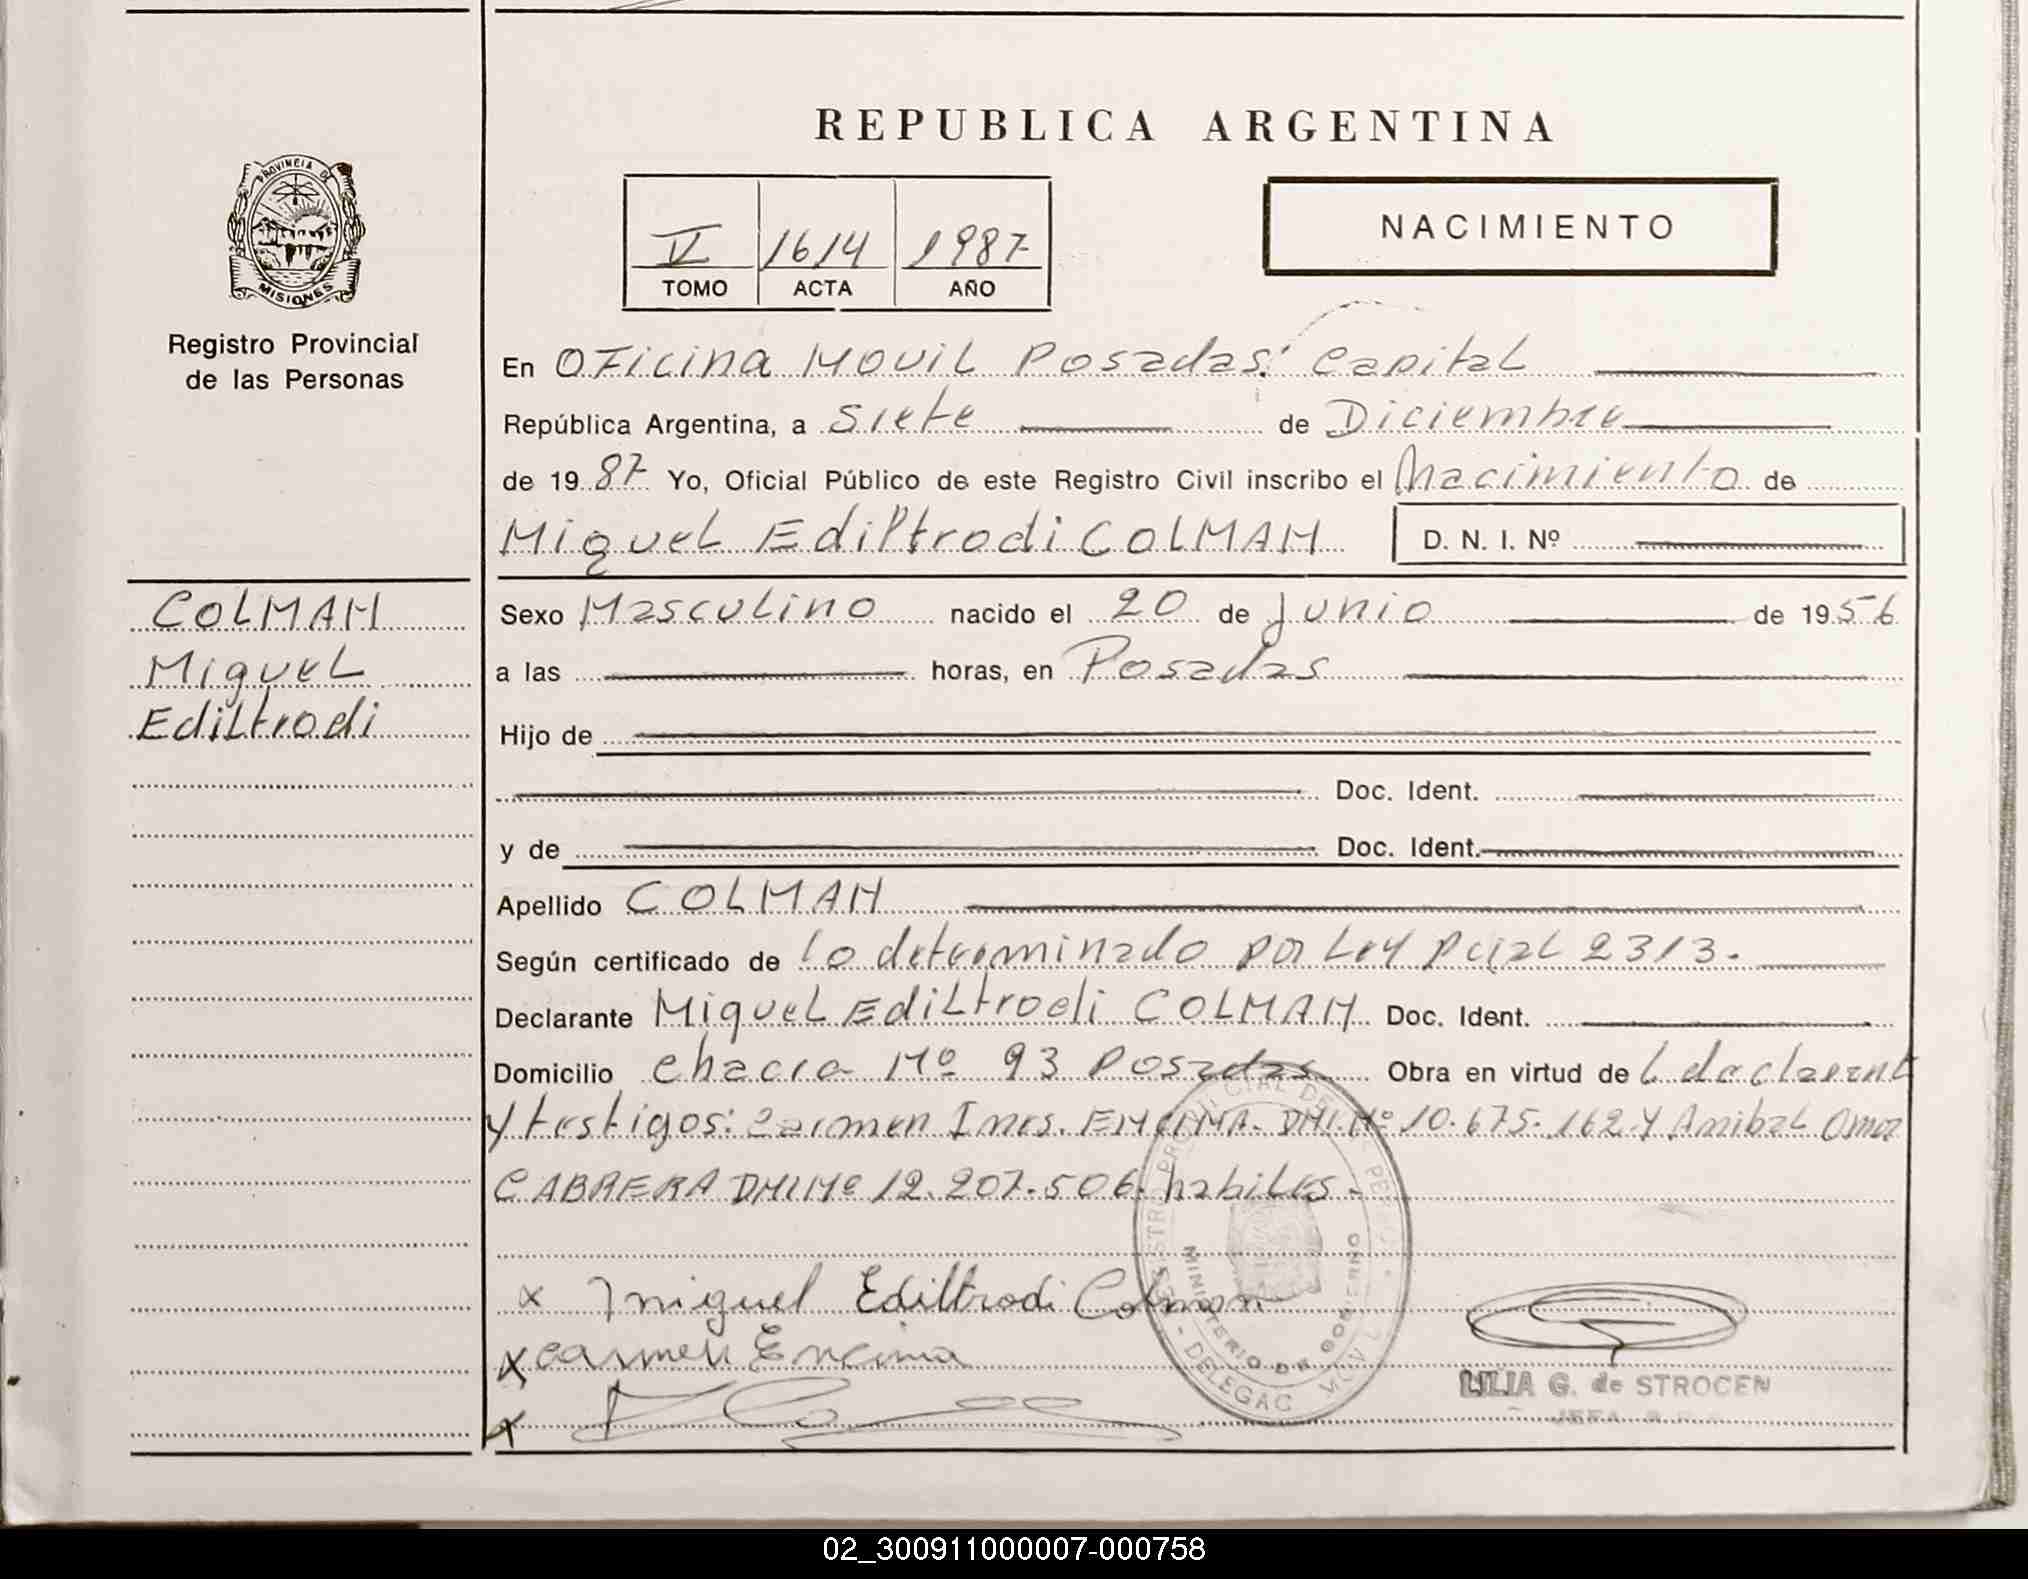 REPUBLICA ARGENTINA
PROVINCIA DE MISIONES
Registro Provincial
de las Personas
V 1614 1987
TOMO ACTA AÑO
NACIMIENTO
En Oficina Movil Posadas: Capital
República Argentina, a Siete de Diciembre
de 1987 Yo, Oficial Público de este Registro Civil inscribo el Nacimiento de
Miguel Ediltrodi COLMAN D. N. I. Nº
COLMAN
Miguel
Ediltrodi
Sexo Masculino nacido el 20 de Junio de 1956
a las horas, en Posadas
Hijo de
Doc. Ident.
y de Doc. Ident.
Apellido COLMAN
Según certificado de lo determinado por Ley Pcial 2313.
Declarante Miguel Ediltrodi COLMAN Doc. Ident.
Domicilio chacra Nº 93 Posadas Obra en virtud de l declarant
y testigos: Carmen Ines. ENCINA. DNI.Nº 10.675.162 y Anibal Omar
CABRERA DNI Nº 12.207.506. habiles.
x Miguel Ediltrodi Colman
x Carmen Encina
x
MINISTERIO DE GOBIERNO
LILIA G. de STROCEN
JEFA
02_300911000007-000758